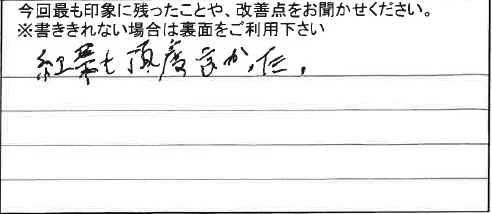 今回最も印象に残ったことや、改善点をお聞かせください。
※書ききれない場合は裏面をご利用下さい
紅葉も頂度良かった。